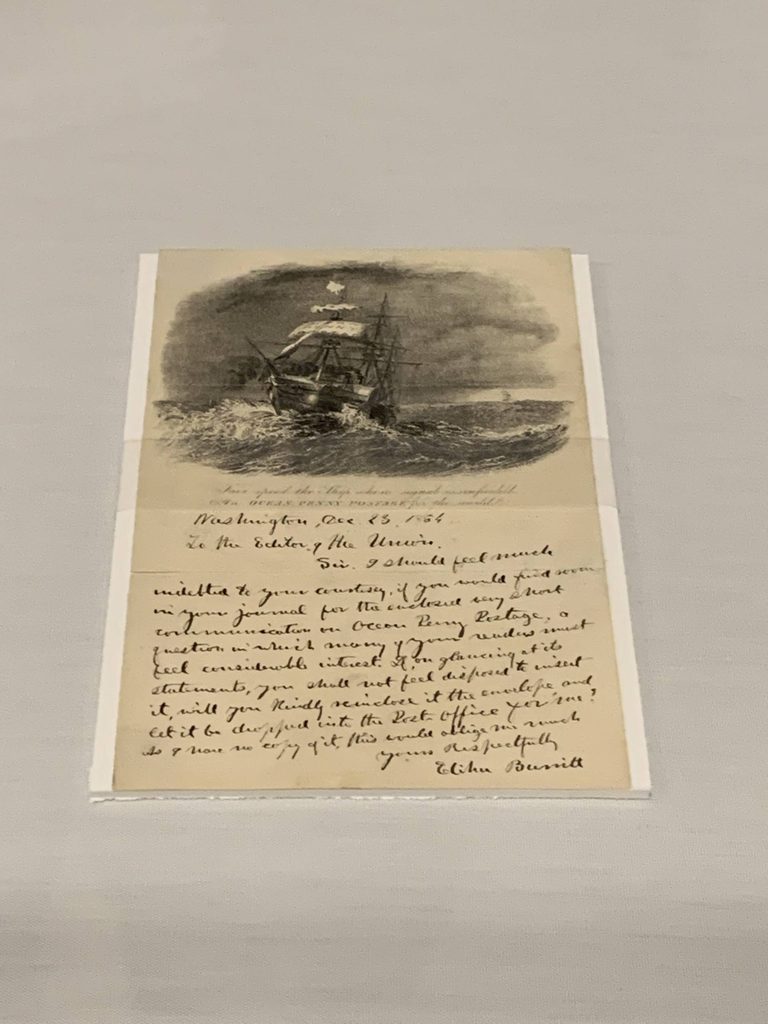 Fair speed the Ship whose signal is unfurled,
An OCEAN PENNY POSTAGE for the world!
Washington, Dec 23, 1854.
To the Editor of the Union,
Sir. I should feel much
indebted to your courtesy, if you would find room
in your journal for the enclosed very short
communication on Ocean Penny Postage, a
question in which many of your readers must
feel considerable interest. If, on glancing at its
statements, you shall not feel disposed to insert
it, will you kindly reinclose it the envelope and
let it be dropped into the Post Office for me?
As I have no copy of it, this would oblige me much
yours Respectfully
Elihu Burritt